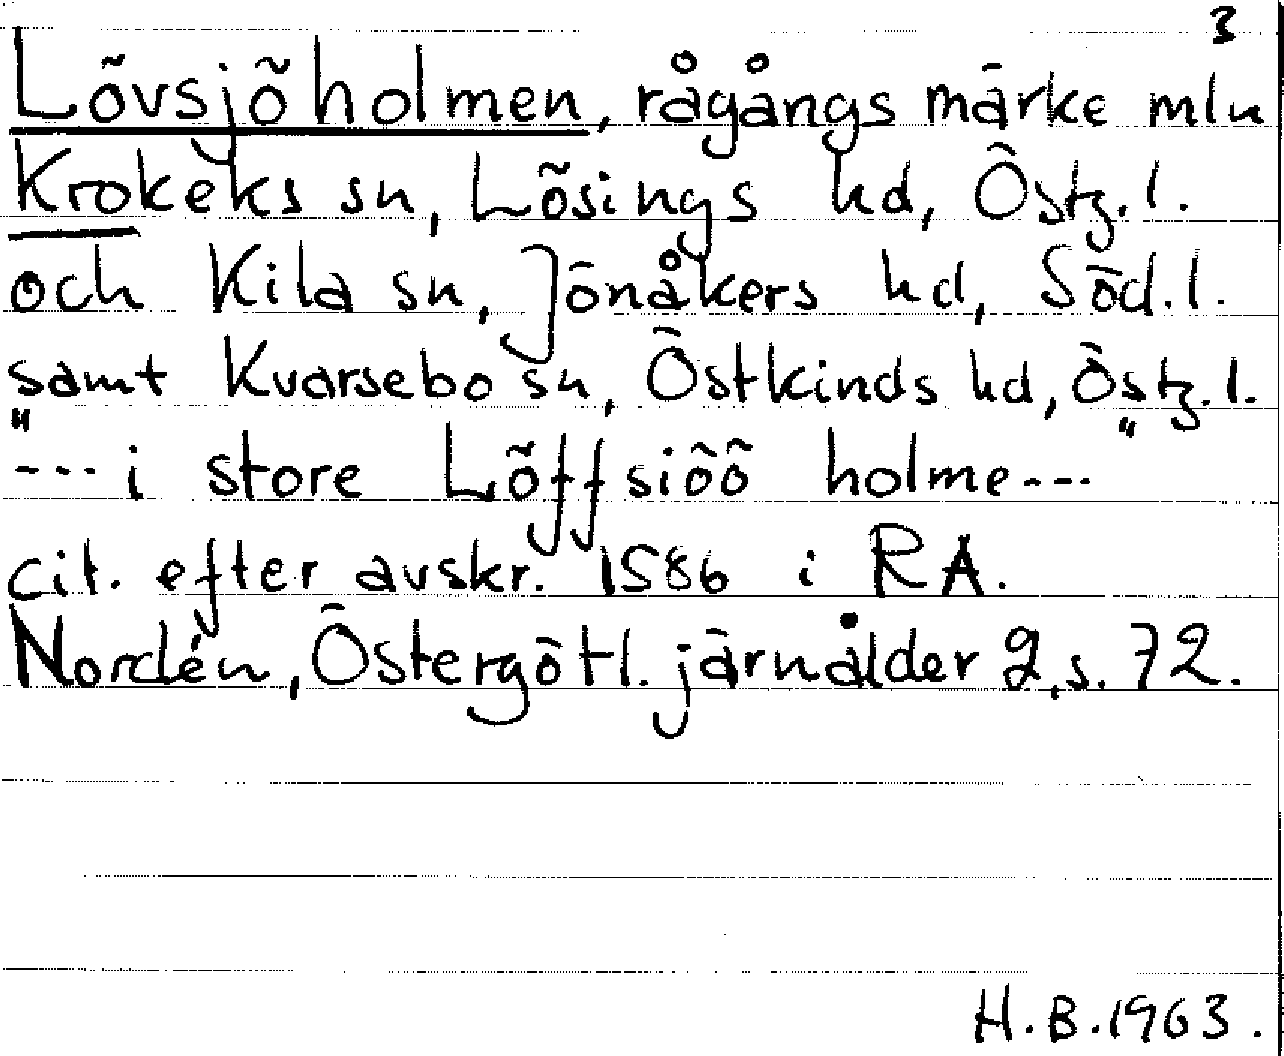 3
Lövsjöholmen, rågångsmärke mln
Krokeks sn, Lösings hd, Östg. l.
och Kila sn, Jönåkers hd, Söd. l.
samt Kvarsebo sn, Östkinds hd, Östg. l.
"--- i store Löffsiöö holme ---"
cit. efter avskr. 1586 i RA.
Nordén, Östergötl. järnålder 2, s. 72.
H. B. 1963.